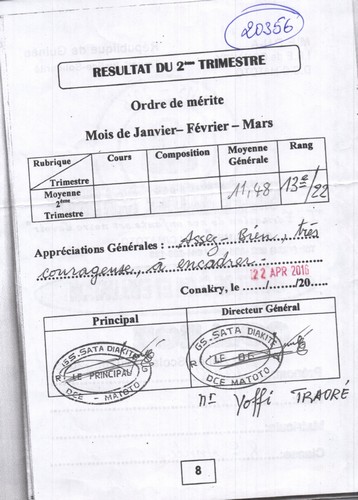 20356
RESULTAT DU 2ème TRIMESTRE
Ordre de mérite
Mois de Janvier– Février – Mars
Rubrique Trimestre Cours Composition Moyenne Générale Rang
Moyenne 2ème Trimestre 11,48 13e/22
Appréciations Générales : Assez Bien, très
courageuse, à encadrer.
22 APR 2016
Conakry, le ......./......./20.....
Principal Directeur Général
GS. SATA DIAKITE GS. SATA DIAKITE
LE PRINCIPAL LE D.G
DCE - MATOTO DCE - MATOTO
Mr Yoffi TRAORÉ
8